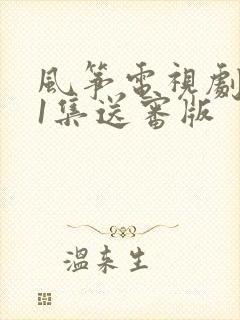 風筝電視劇
1集送審版
溫来生